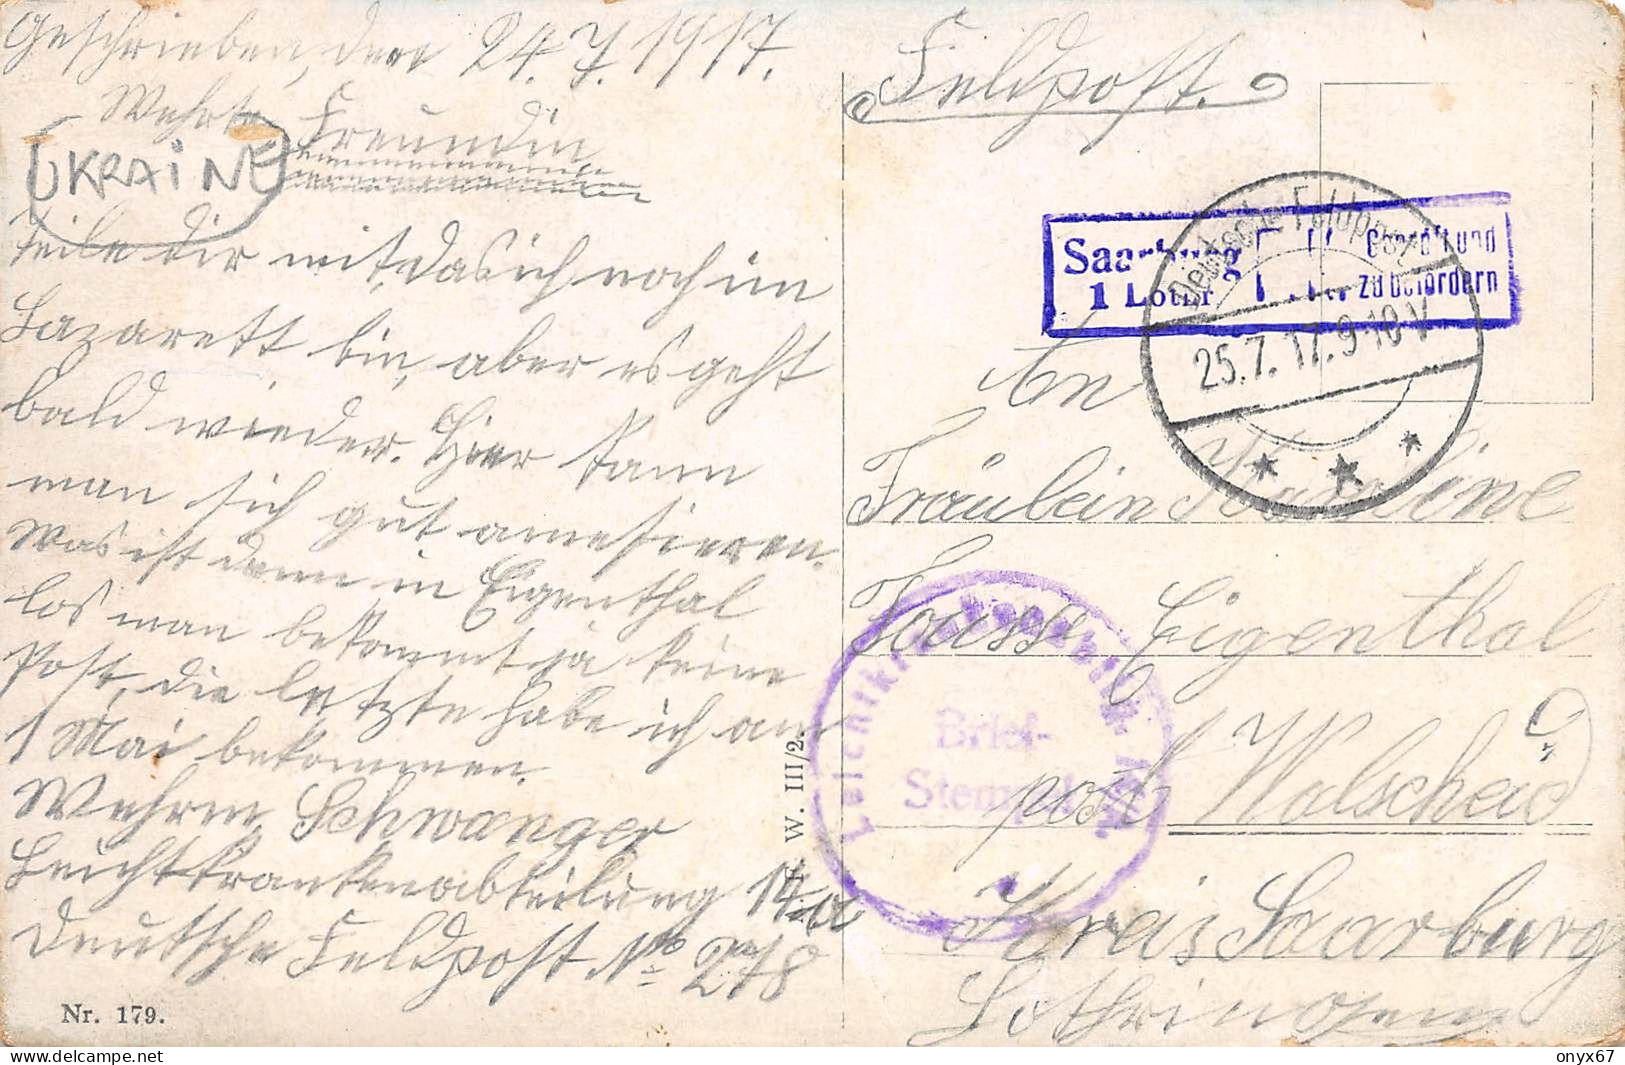 Geschrieben, den 24.7.1917.
Werthe Freundin
UKRAINE
teile dir mit, das ich noch im
Lazarett bin, aber es geht
bald wieder. Hier kann
man sich gut amesieren.
Was ist denn in Eigenthal
los man bekommt ja keine
Post, die letzte habe ich am
1 Mai bekommen.
Wehrm Schwanger
Leichtkrankenabteilung 14a
Deutsche Feldpost No 278
Nr. 179.
W. III/2.
Feldpost.
Saarburg
1 Lothr
Geprüft und
zu befördern
Deutsche Feldpost
25.7.17.9-10V
An
Fräulein
Eigenthal
post Walscheid
Kreis Saarburg
Lothringen
Brief-
Stempel
onyx67